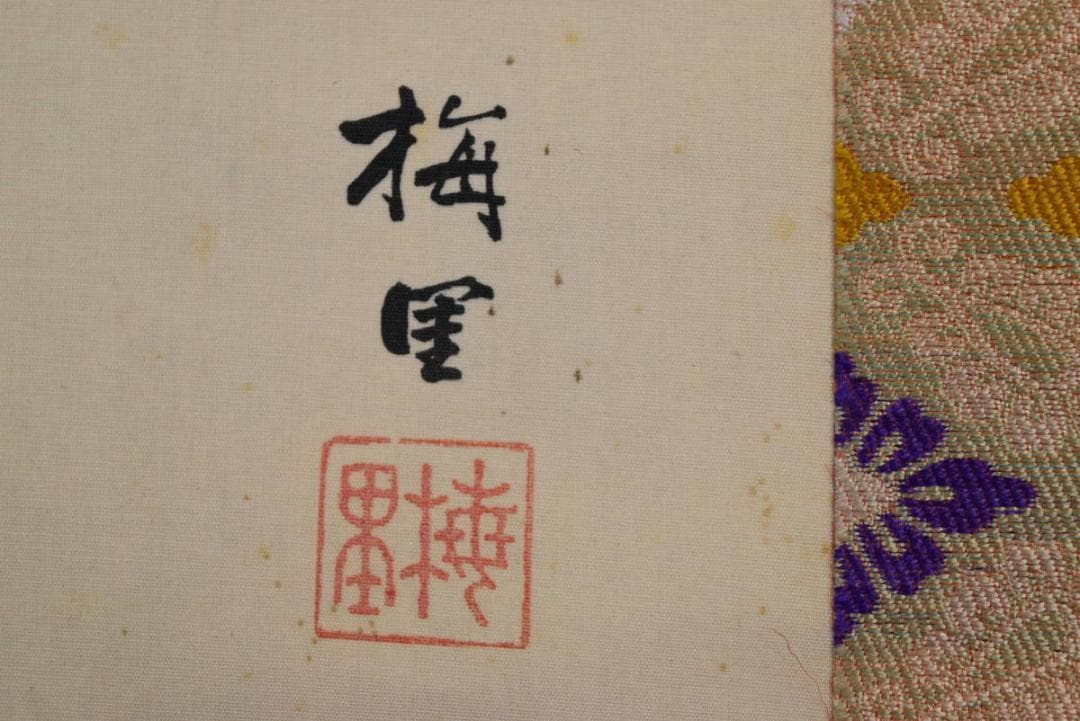 梅里
梅里